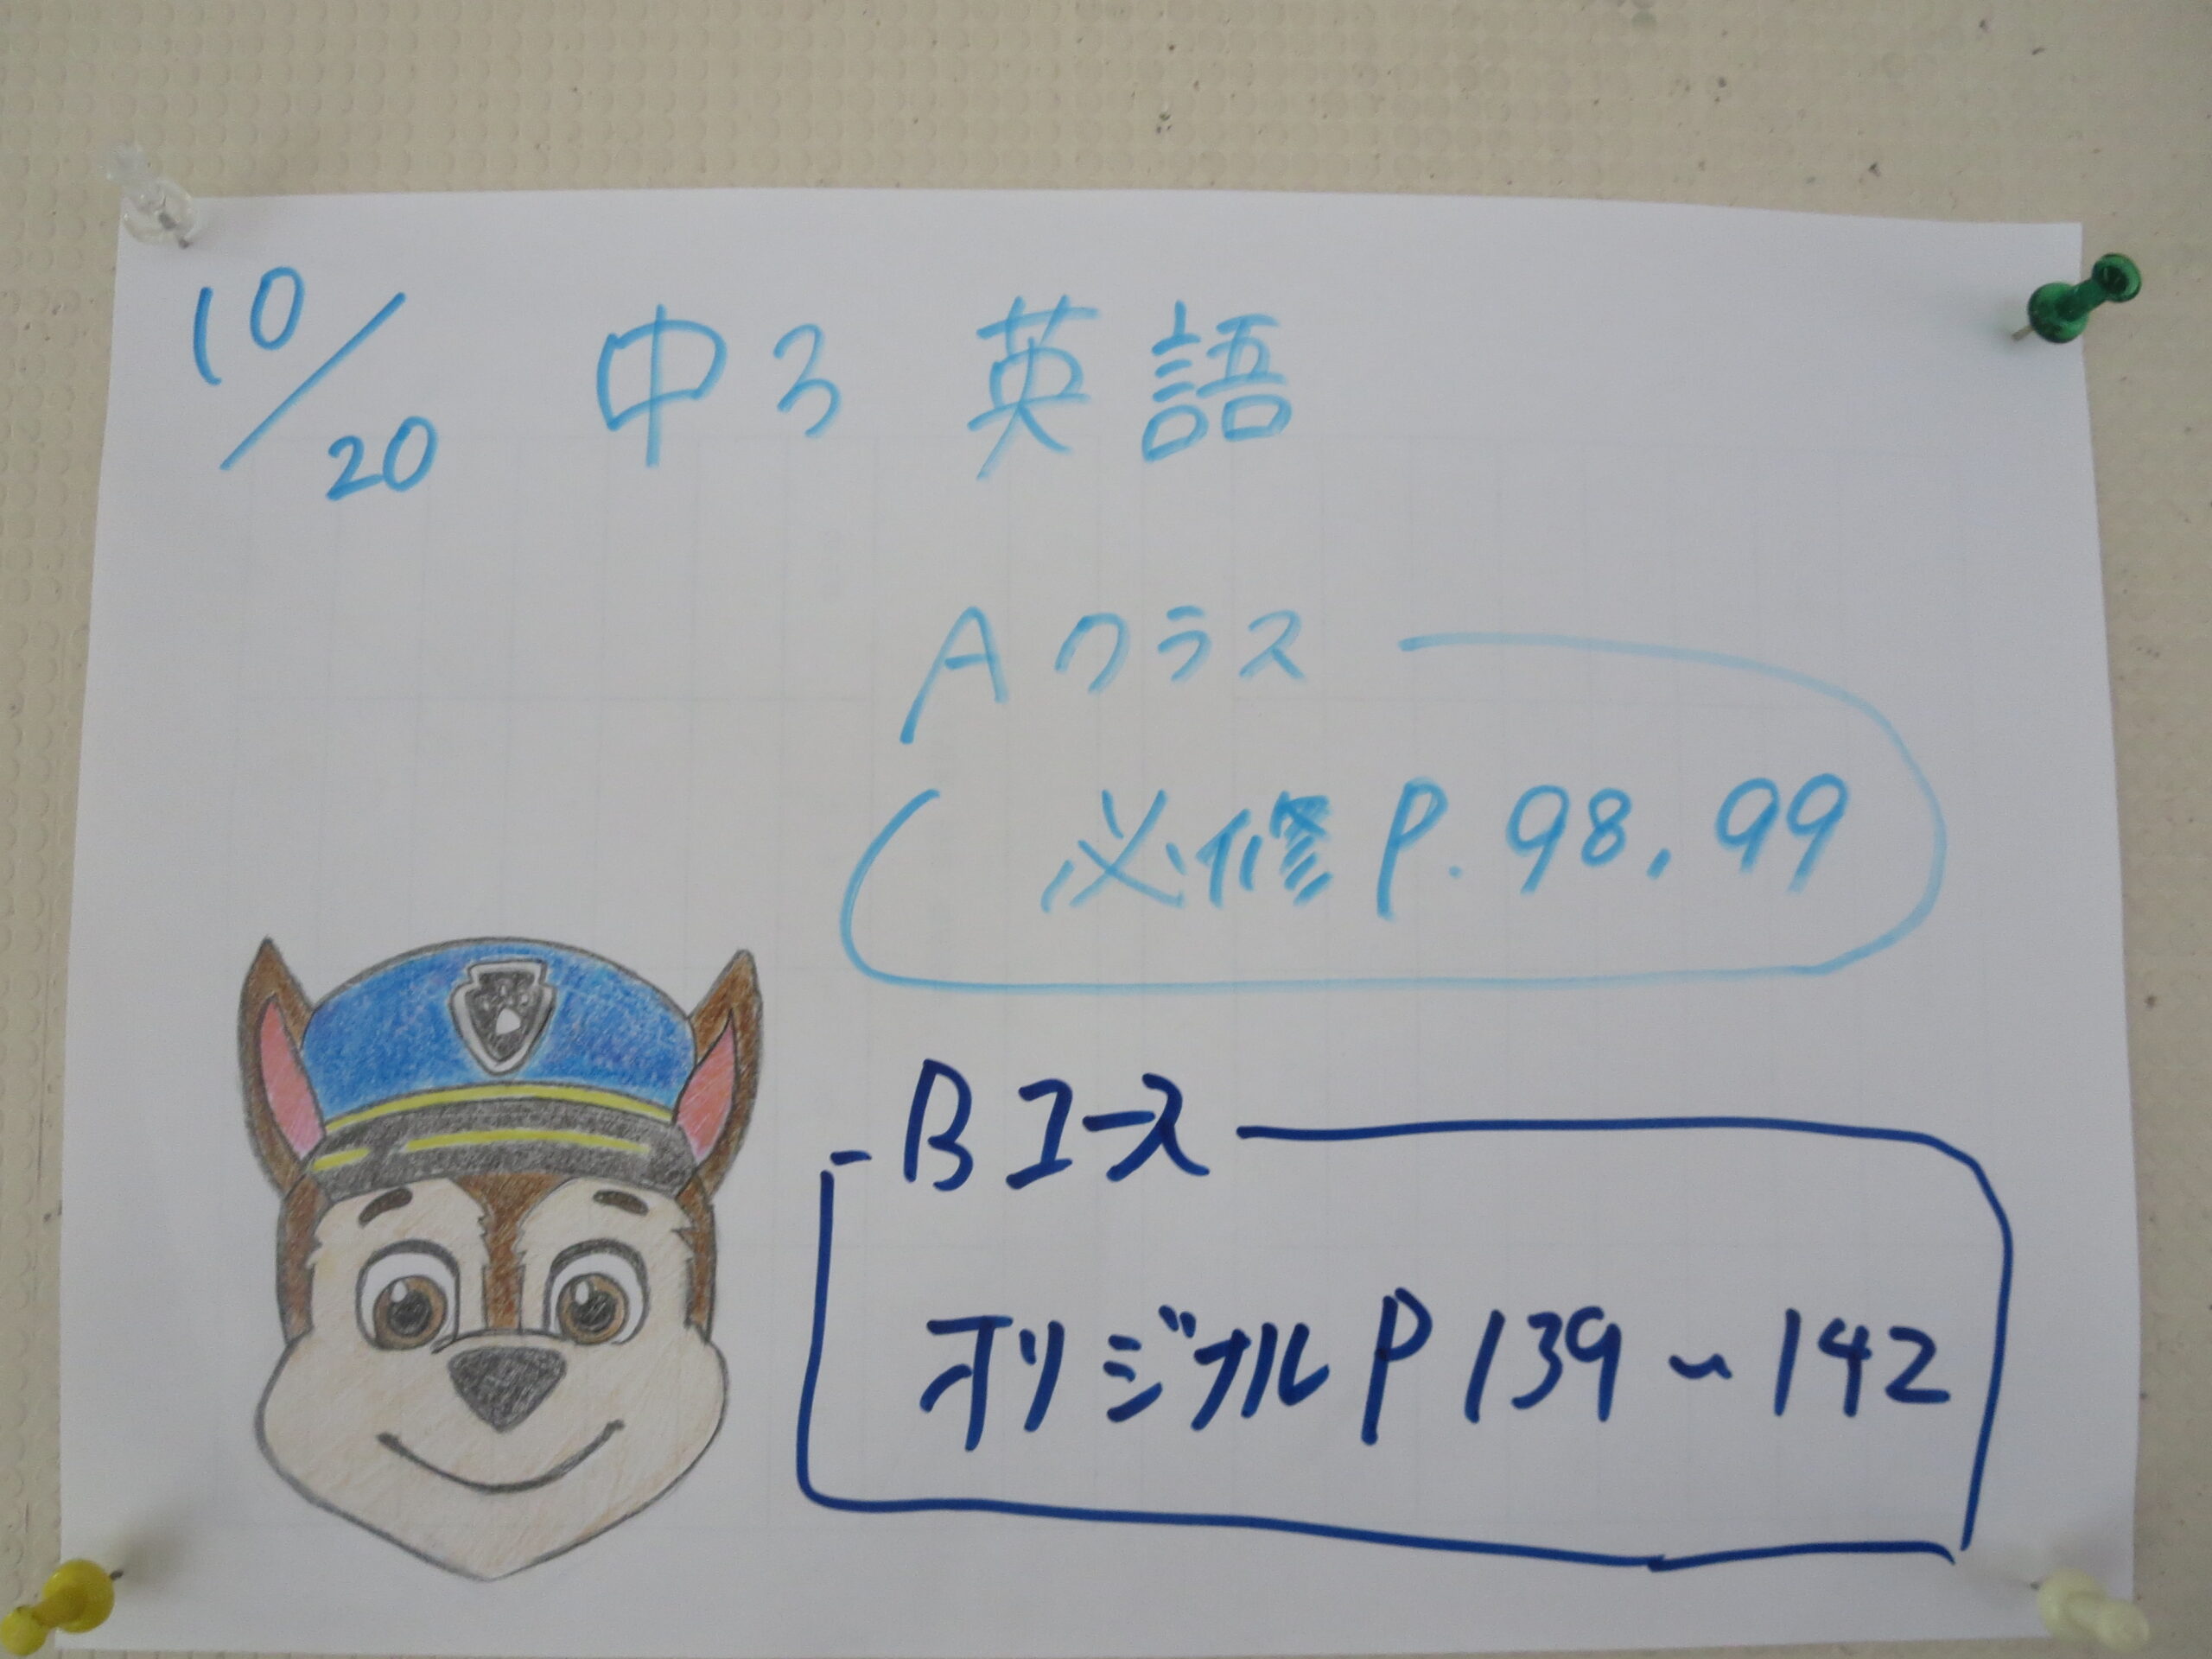 10/20 中3 英語
Aクラス
必修 P. 98, 99
Bコース
オリジナル P 139〜142